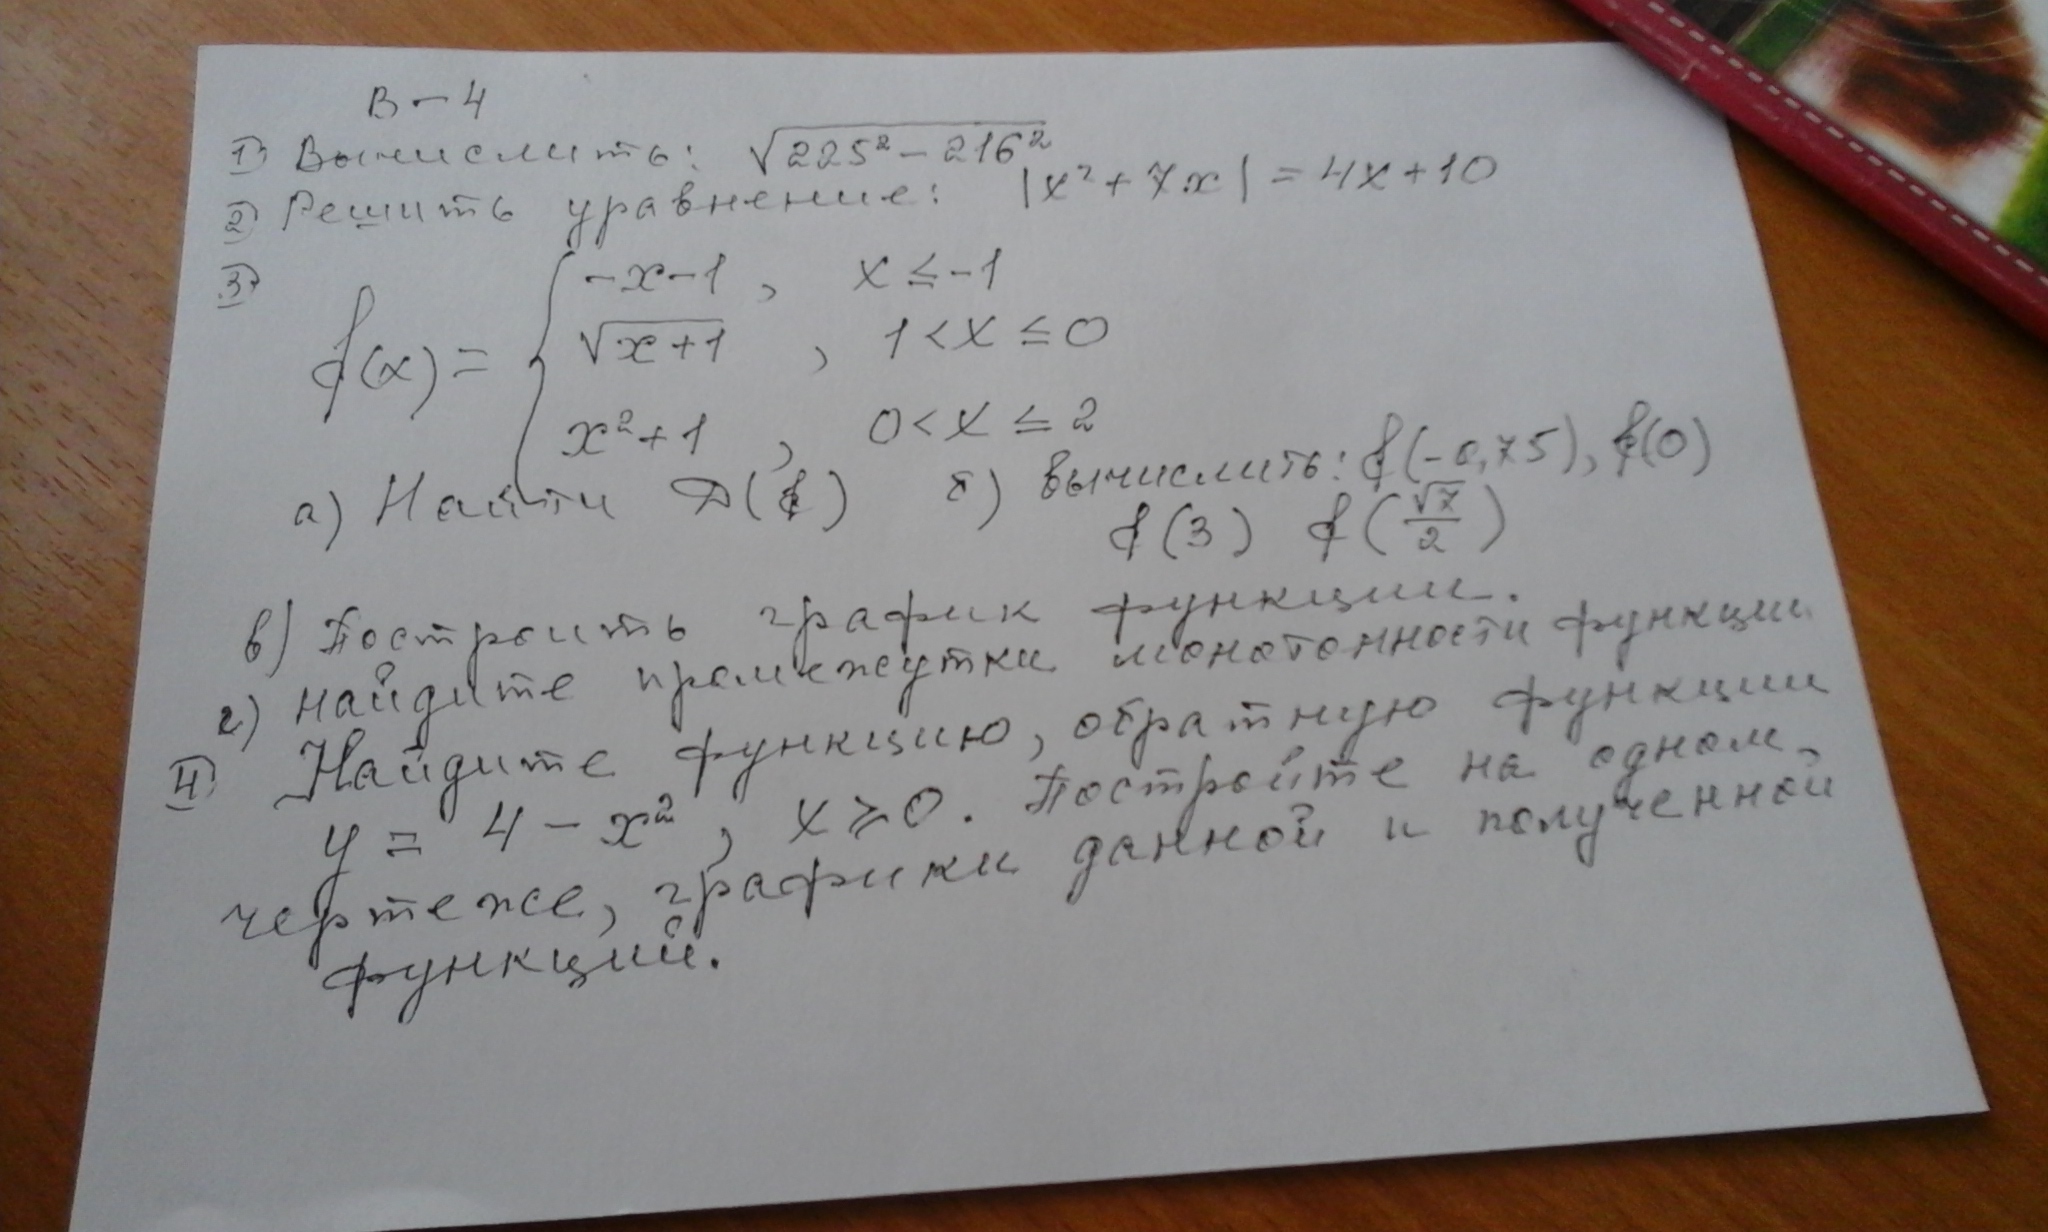 В-4
1) Вычислить: √225² - 216²
2) Решить уравнение: |x² + 7x| = 4x + 10
3)
f(x) = { -x-1, x ≤ -1
√x+1, 1 < x ≤ 0
x²+1, 0 < x ≤ 2
а) Найти D(f) б) вычислить: f(-0,75), f(0)
f(3) f(√7/2)
в) Построить график функции.
г) найдите промежутки монотонности функции
4) Найдите функцию, обратную функции
y = 4 - x², x ≥ 0. Постройте на одном
чертеже, графики данной и полученной
функций.